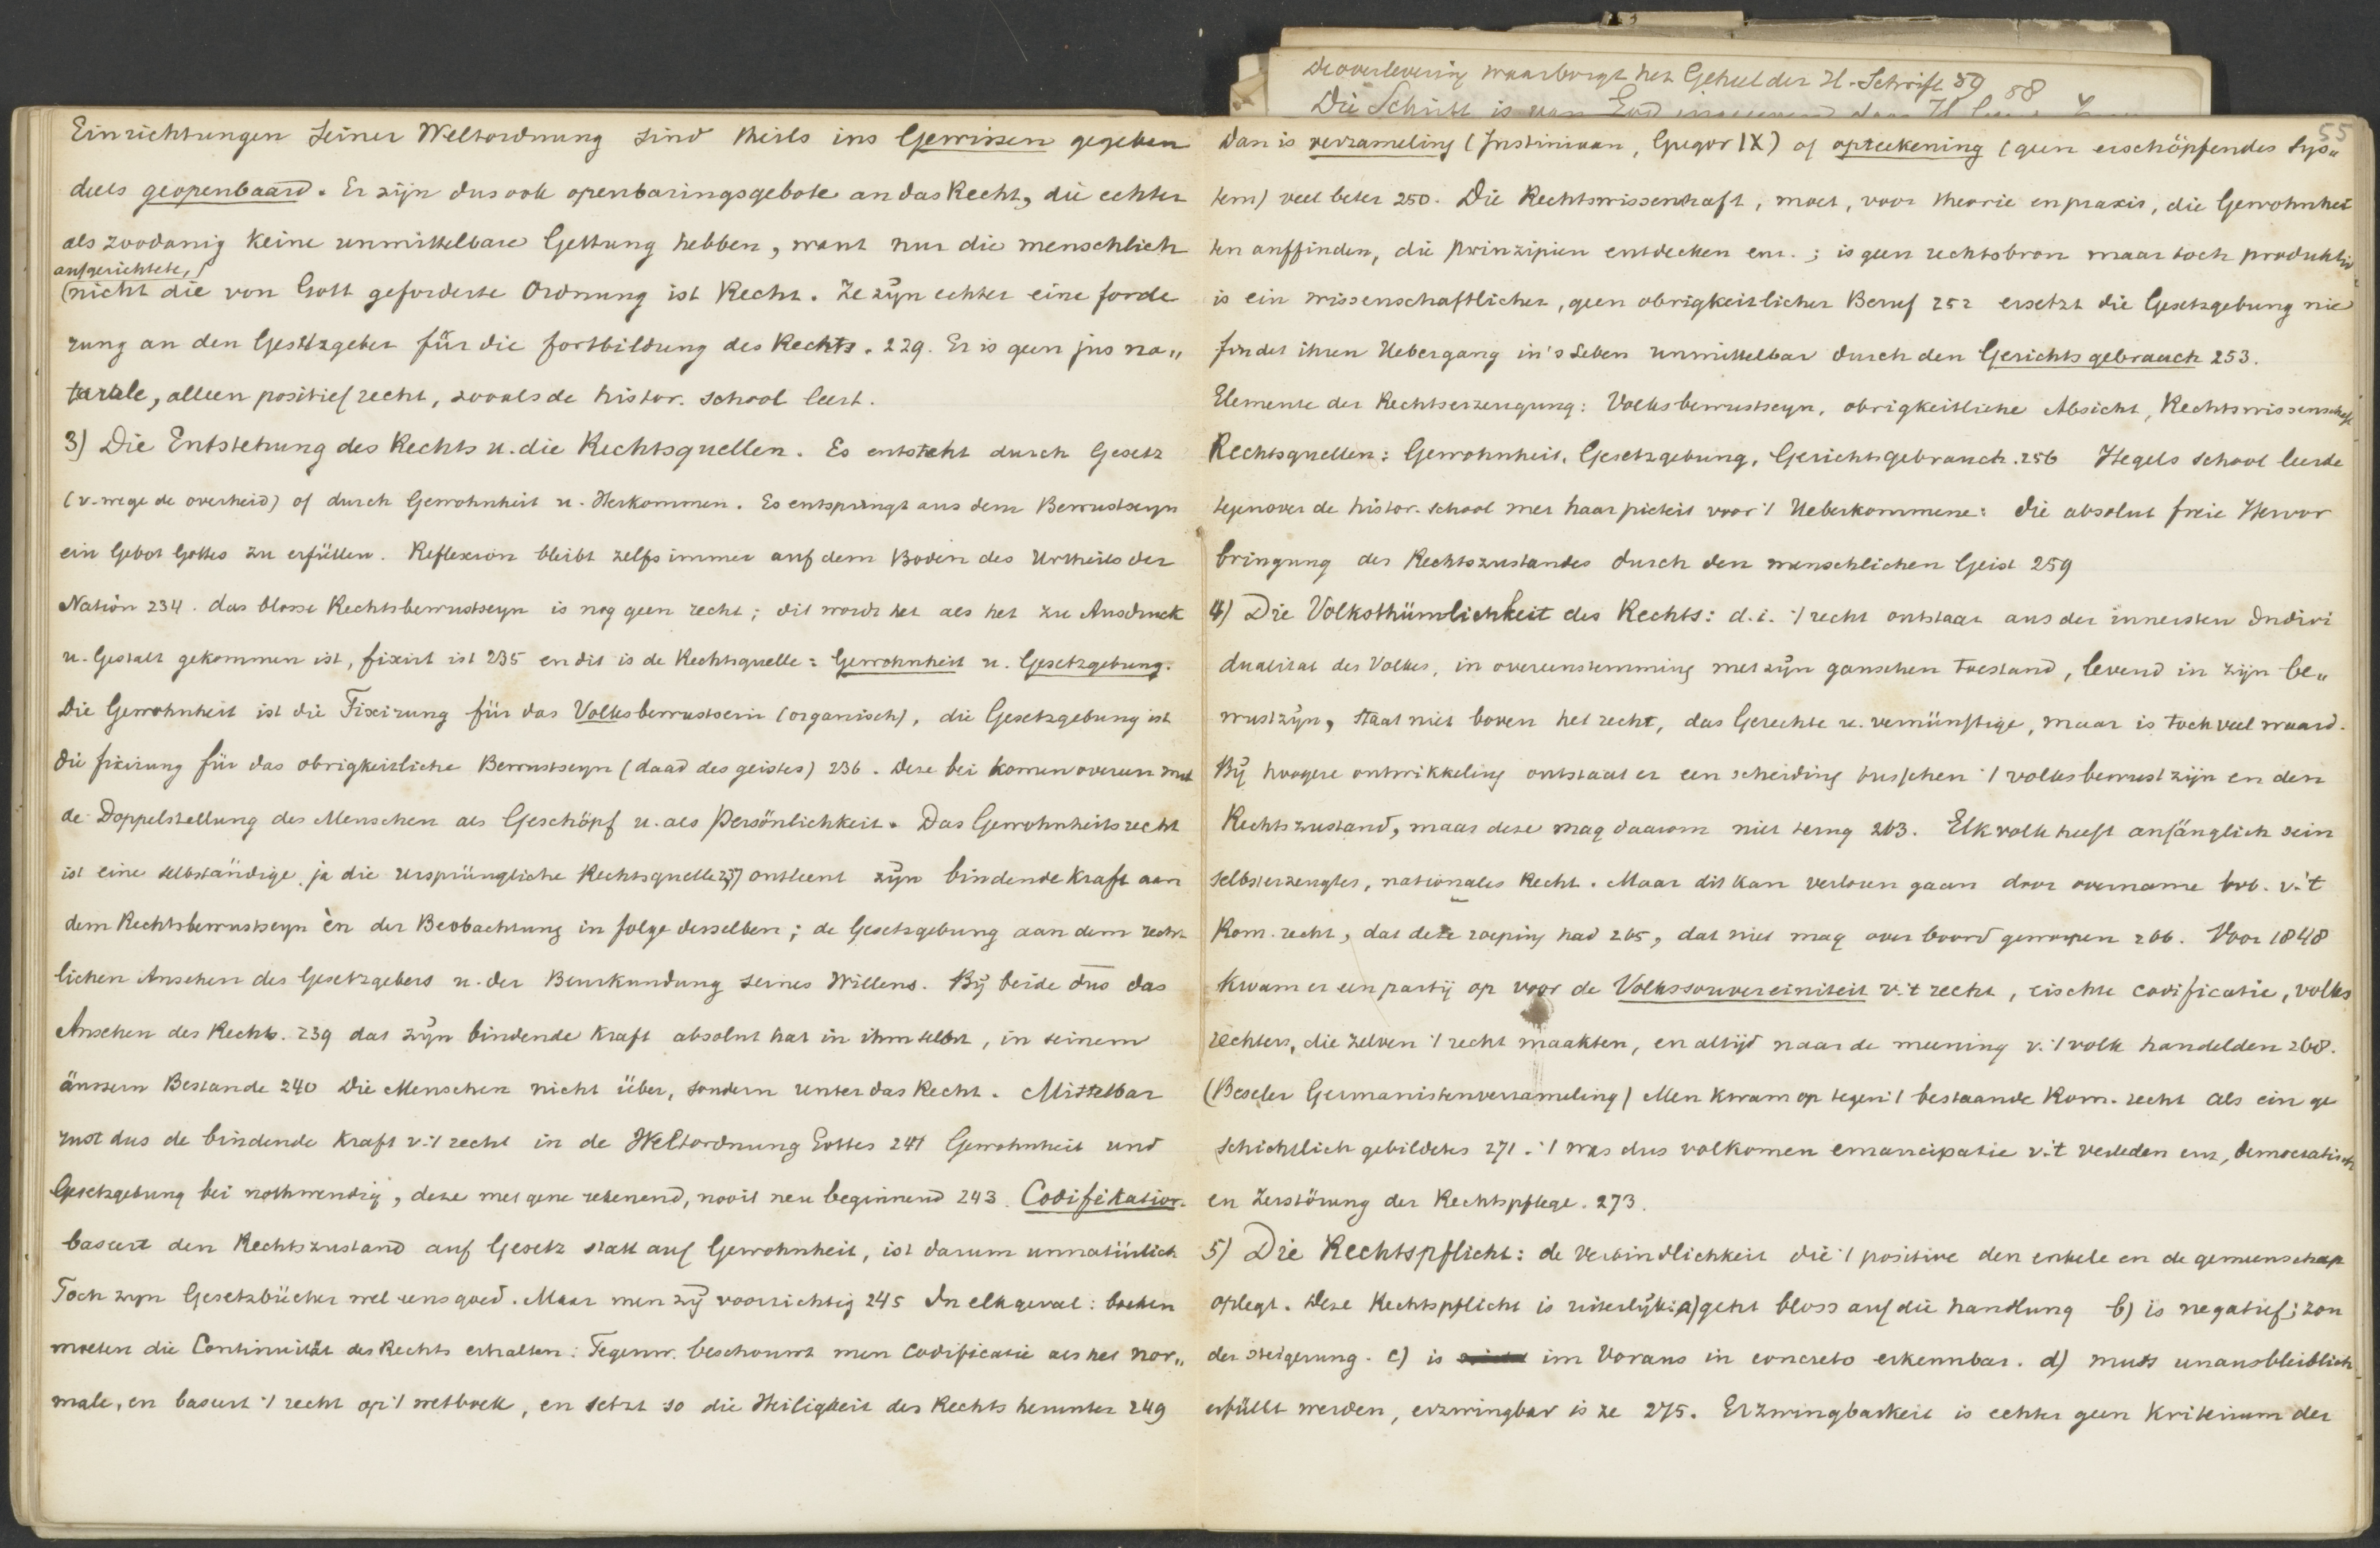 de overlevering waarborgt het Geheel der H. Schrift 59 58
Die Schrift is van God
55
Einrichtungen seiner Weltordnung sind theils ins Gewissen gegeben
deels geopenbaard. Er zijn dus ook openbaringsgebote an das Recht, die echter
als zoodanig keine unmittelbare Geltung hebben, want nur die menschlich
aufgerichtete,
(nicht die von Gott geforderte Ordnung ist Recht. Ze zijn echter eine forde
rung an den Gesetzgeber für die fortbildung des Rechts. 229. Er is geen jus na„
turale, alleen positief recht, zooals de histor. school leert.
3) Die Entstehung des Rechts u. die Rechtsquellen. Es entsteht durch Gesetz
(v. wege de overheid) of durch Gewohnheit u. Herkommen. Es entspringt aus dem Bewustseyn
ein Gebot Gottes zu erfüllen. Reflexion bleibt zelfs immer auf dem Boden des Urtheils der
Nation 234. das blosse Rechtsbewustseyn is nog geen recht; dit wordt het als het zu Ausdruck
u. Gestalt gekommen ist, fixirt ist 235 en dit is de Rechtsquelle: Gewohnheit u. Gesetzgebung.
Die Gewohnheit ist die Fixirung für das Volksbewustsein (organisch), die Gesetzgebung ist
die fixirung für das obrigkeitliche Bewustseyn (daad des geistes) 236. Deze bei komen overeen met
de Doppelstellung des Menschen als Geschöpf u. als Persönlichkeit. Das Gewohnheitsrecht
ist eine selbständige, ja die ursprüngliche Rechtsquelle 237) ontleent zijn bindende kraft aan
dem Rechtsbewustseyn èn der Beobachtung in folge desselben; de Gesetzgebung aan dem recht
lichen Ansehen des Gesetzgebers u. der Beurkundung seines Willens. Bij beide dus das
Ansehen des Rechts. 239 dat zijn bindende kraft absolut hat in ihm selbst, in seinem
äussern Bestande 240 Die Menschen nicht über, sondern unter das Recht. Mittelbar
rust dus de bindende kraft v. 't recht in de Weltordnung Gottes 241 Gewohnheit und
Gesetzgebung bei nothwendig, deze met gene rekenend, nooit neu beginnend 243. Codifikation.
baseert den Rechtszustand auf Gesetz statt auf Gewohnheit, ist darum unnatürlich
Toch zijn Gesetzbücher wel eens goed. Maar men zij voorzichtig 245 In elk geval: boeken
moeten die Continuität des Rechts erhalten. Tegenw. beschouwt men codificatie als het nor„
male, en baseert 't recht op 't wetboek, en setzt so die Heiligkeit des Rechts herunter 249
Dan is verzameling (Justiniaan, Gregor IX) of opteekening (geen erschöpfendes Sys„
tem) veel beter 250. Die Rechtswissenschaft, moet, voor theorie en praxis, die Gewohnhei
ten auffinden, die Prinzipien entdecken enz.; is geen rechtsbron maar toch produktiv
is ein wissenschaftlicher, geen obrigkeitlicher Beruf 252 ersetzt die Gesetzgebung nie
findet ihren Uebergang in's Leben unmittelbar durch den Gerichtsgebrauch 253.
Elemente der Rechtserzeugung: Volksbewustseyn, obrigkeitliche Absicht, Rechtswissenschaft
Rechtsquellen: Gewohnheit, Gesetzgebung, Gerichtsgebrauch. 256 Hegels school leerde
tegenover de histor. school met haar pieteit voor 't Ueberkommene: die absolut freie Hervor
bringung des Rechtszustandes durch den menschlichen Geist 259
4) Die Volksthümlichkeit des Rechts: d.i. 't recht ontstaat aus der innersten Indivi
dualität des Volkes, in overeenstemming met zijn ganschen toestand, levend in zijn be„
wustzijn, staat niet boven het recht, das Gerechte u. vernünftige, maar is toch veel waard.
Bij hoogere ontwikkeling ontstaat er een scheiding tusschen 't volksbewustzijn en den
Rechtszustand, maar deze mag daarom niet terug 263. Elk volk heeft anfänglich sein
selbsterzeugtes, nationales Recht. Maar dit kan verloren gaan door overname bvb. v. 't
Rom. recht, dat deze roeping had 265, dat niet mag over boord geworpen 266. Voor 1848
kwam er een partij op voor de Volkssouvereiniteit v. 't recht, eischte codificatie, volks
rechters, die zelven 't recht maakten, en altijd naar de meening v. 't volk handelden 268.
(Beseler Germanistenverzameling) Men kwam op tegen 't bestaande Rom. recht als ein ge
schichtlich gebildetes 271. 't was dus volkomen emancipatie v. 't verleden enz, democratisch
en Zerstörung der Rechtspflege. 273.
5) Die Rechtspflicht: de Verbindlichkeit die 't positive den enkele en de gemeenschap
oplegt. Deze Rechtspflicht is uiterlijk: a) geht bloss auf die handlung b) is negatief; zon
der steigerung. c) is im Voraus in concreto erkennbar. d) muss unausbleiblich
erfüllt werden, erzwingbar is ze 275. Erzwingbarkeit is echter geen Kriterium der